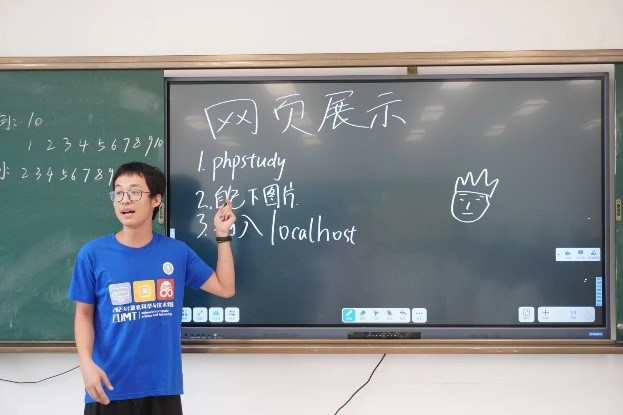 10
1 2 3 4 5 6 7 8 9 10
2 3 4 5 6 7 8 9
网页展示
1. phpstudy
2. 配下图片
3. 入 localhost
计算机科学与技术